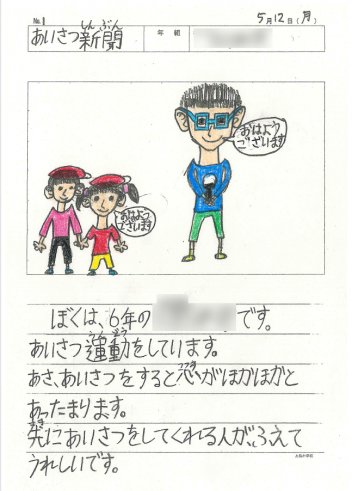 No.1
5月12日(月)
しんぶん
あいさつ新聞
年 組
おはよう
ございます
おはよう
ございます
ぼくは、6年の です。
うんどう
あいさつ運動をしています。
あさ、あいさつをすると心がほかほかと
あったまります。
さき
先にあいさつをしてくれる人が、ふえて
うれしいです。